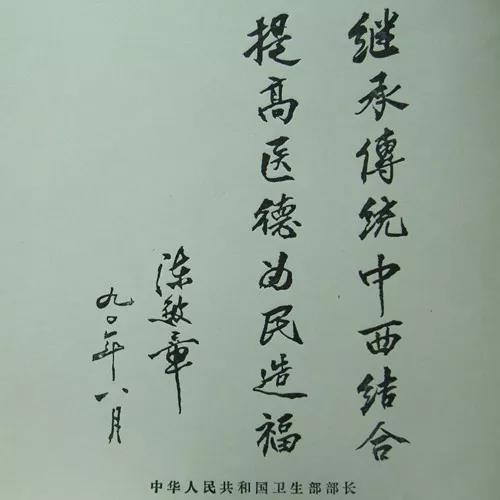 继承傳统中西结合
提高医德为民造福
陈敏章
九〇年八月
中华人民共和国卫生部部长